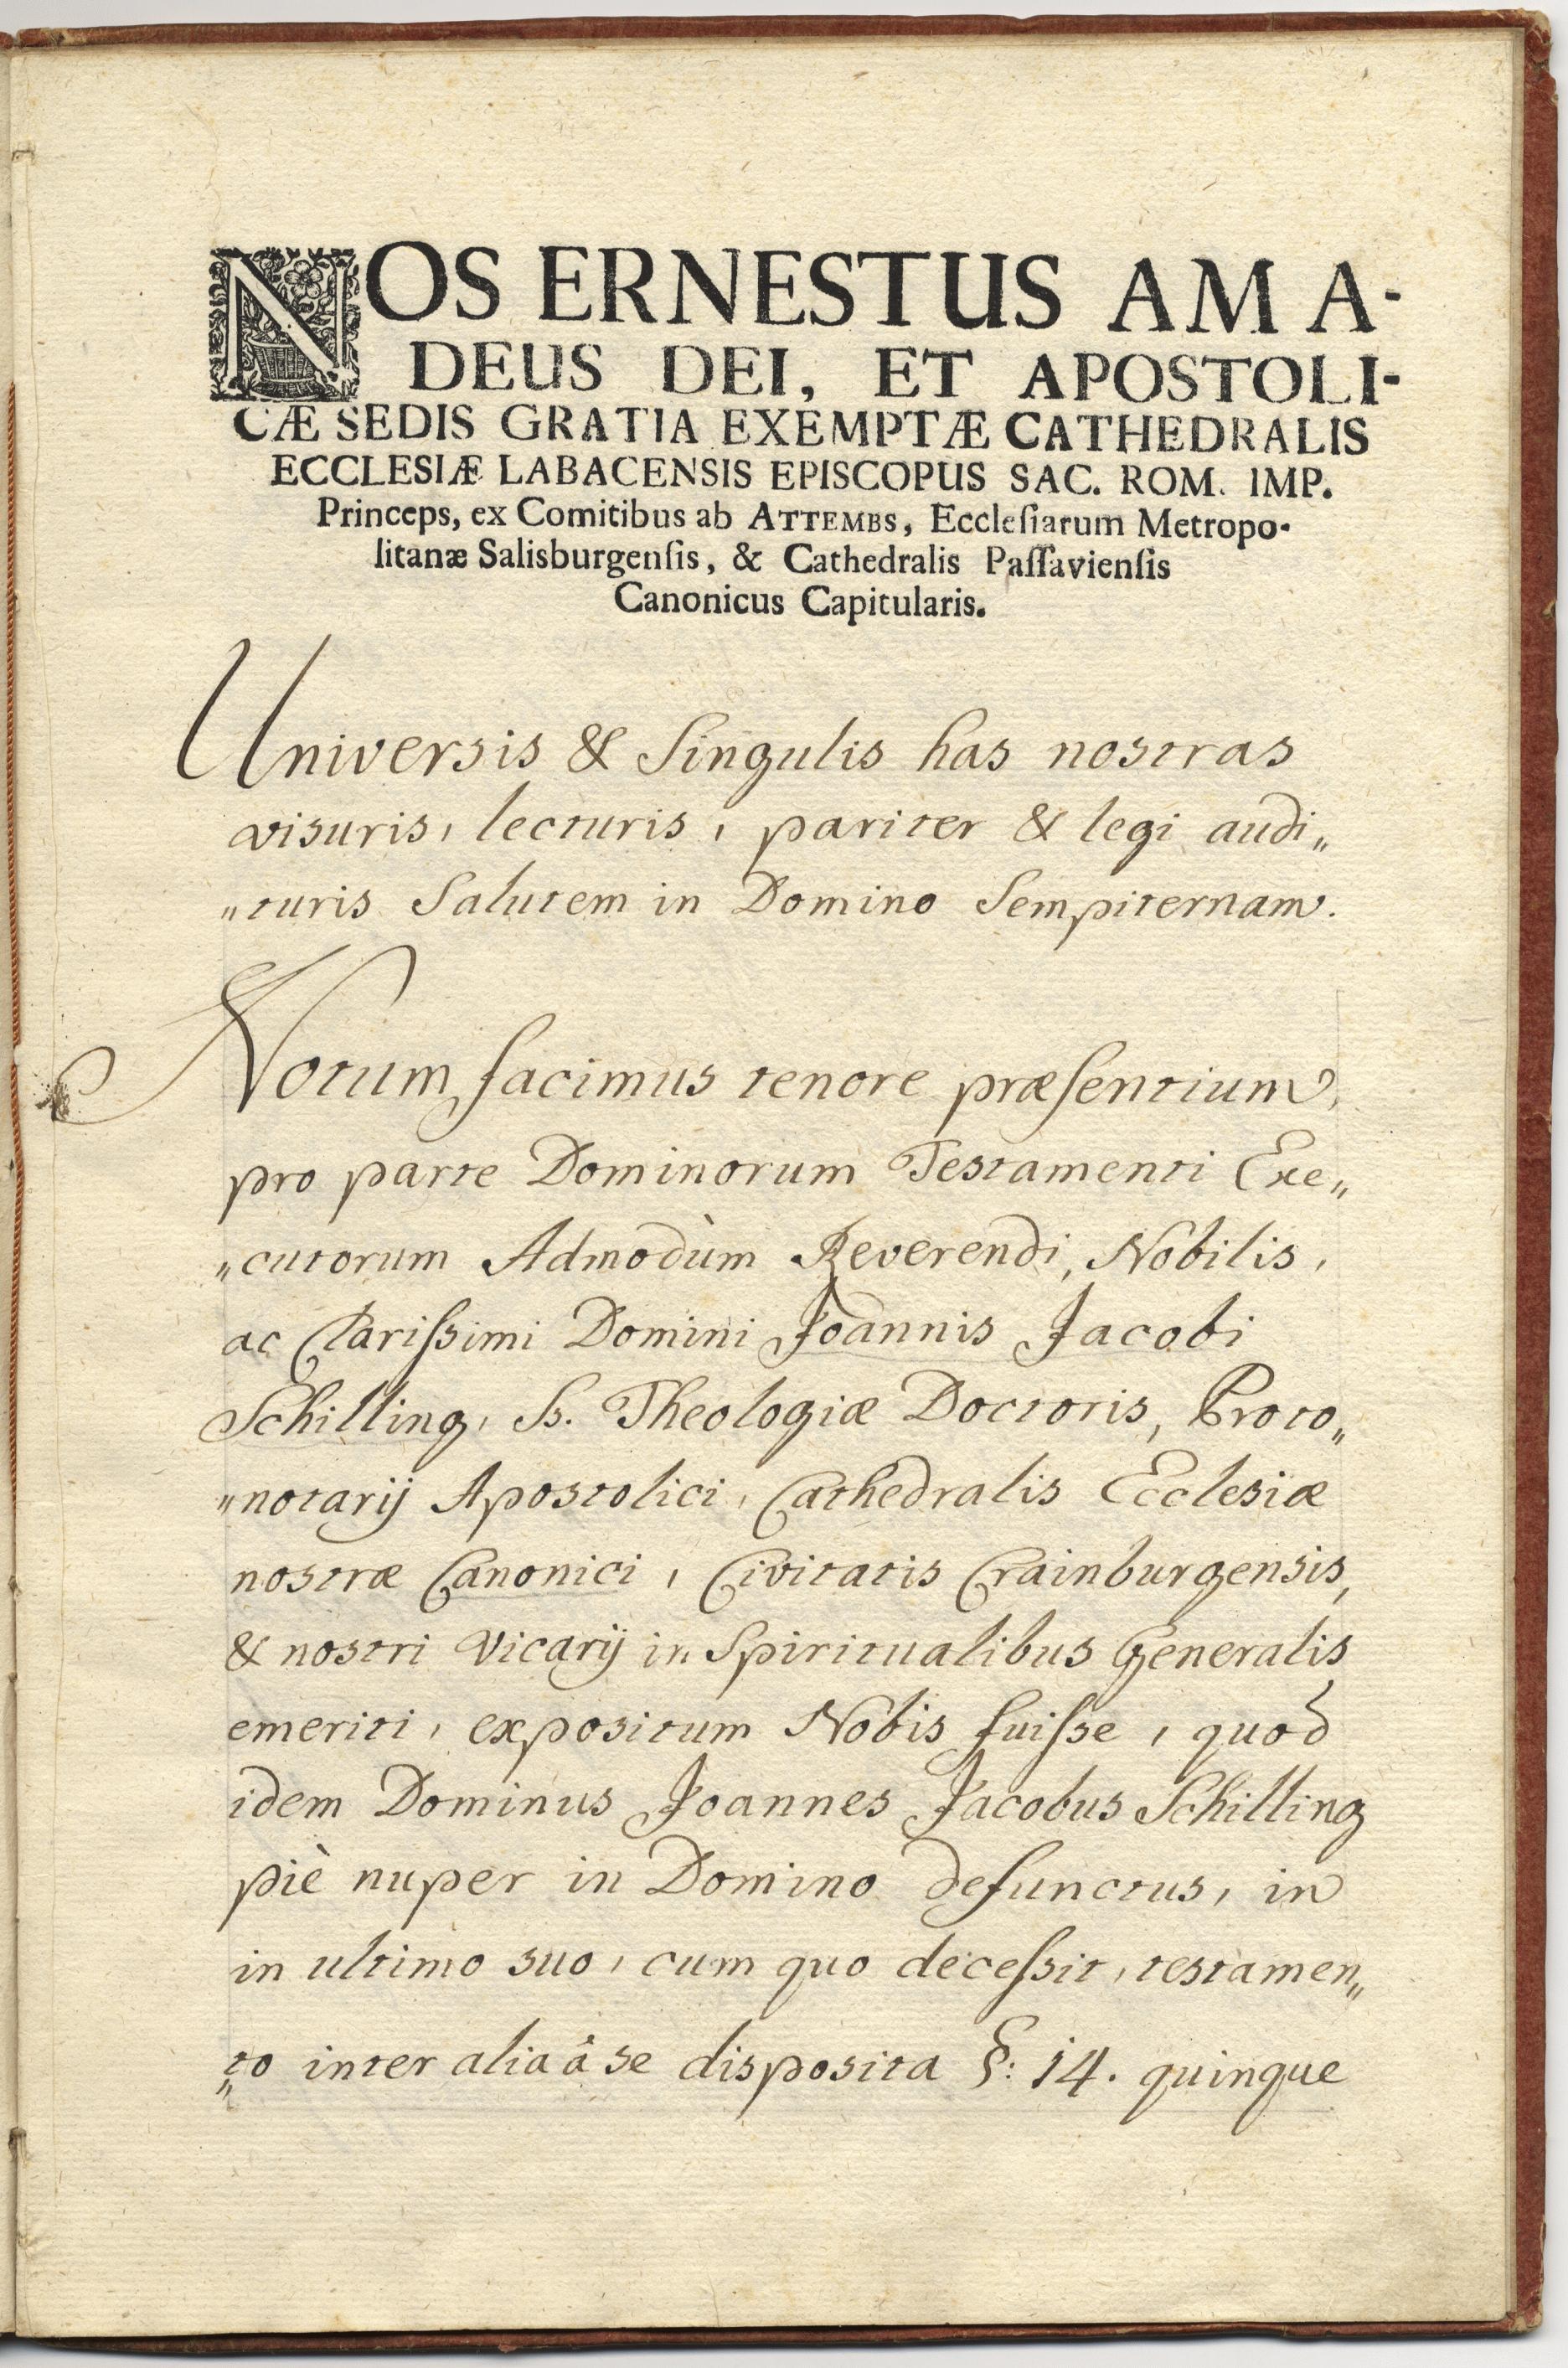 NOS ERNESTUS AMA-
DEUS DEI, ET APOSTOLI-
CÆ SEDIS GRATIA EXEMPTÆ CATHEDRALIS
ECCLESIÆ LABACENSIS EPISCOPUS SAC. ROM. IMP.
Princeps, ex Comitibus ab ATTEMBS, Eccleſiarum Metropo-
litanæ Salisburgenſis, & Cathedralis Paſſavienſis
Canonicus Capitularis.
Universis & Singulis has nostras
visuris, lecturis, pariter & legi audi„
„turis Salutem in Domino Sempiternam.
Notum facimus tenore præſentium,
pro parte Dominorum Testamenti Exe„
„cutorum Admodùm Reverendi, Nobilis,
ac Clariſsimi Domini Joannis Jacobi
Schilling, Ss. Theologiæ Doctoris, Proto„
„notarij Apostolici, Cathedralis Ecclesiæ
nostræ Canonici, Civitatis Crainburgensis,
& nostri Vicarij in Spiritualibus Generalis
emeriti, expositum Nobis fuiſse, quod
idem Dominus Joannes Jacobus Schilling
piè nuper in Domino defunctus, in
in ultimo suo, cum quo deceſsit, testamen„
„to inter alia à se disposita §: 14. quinque